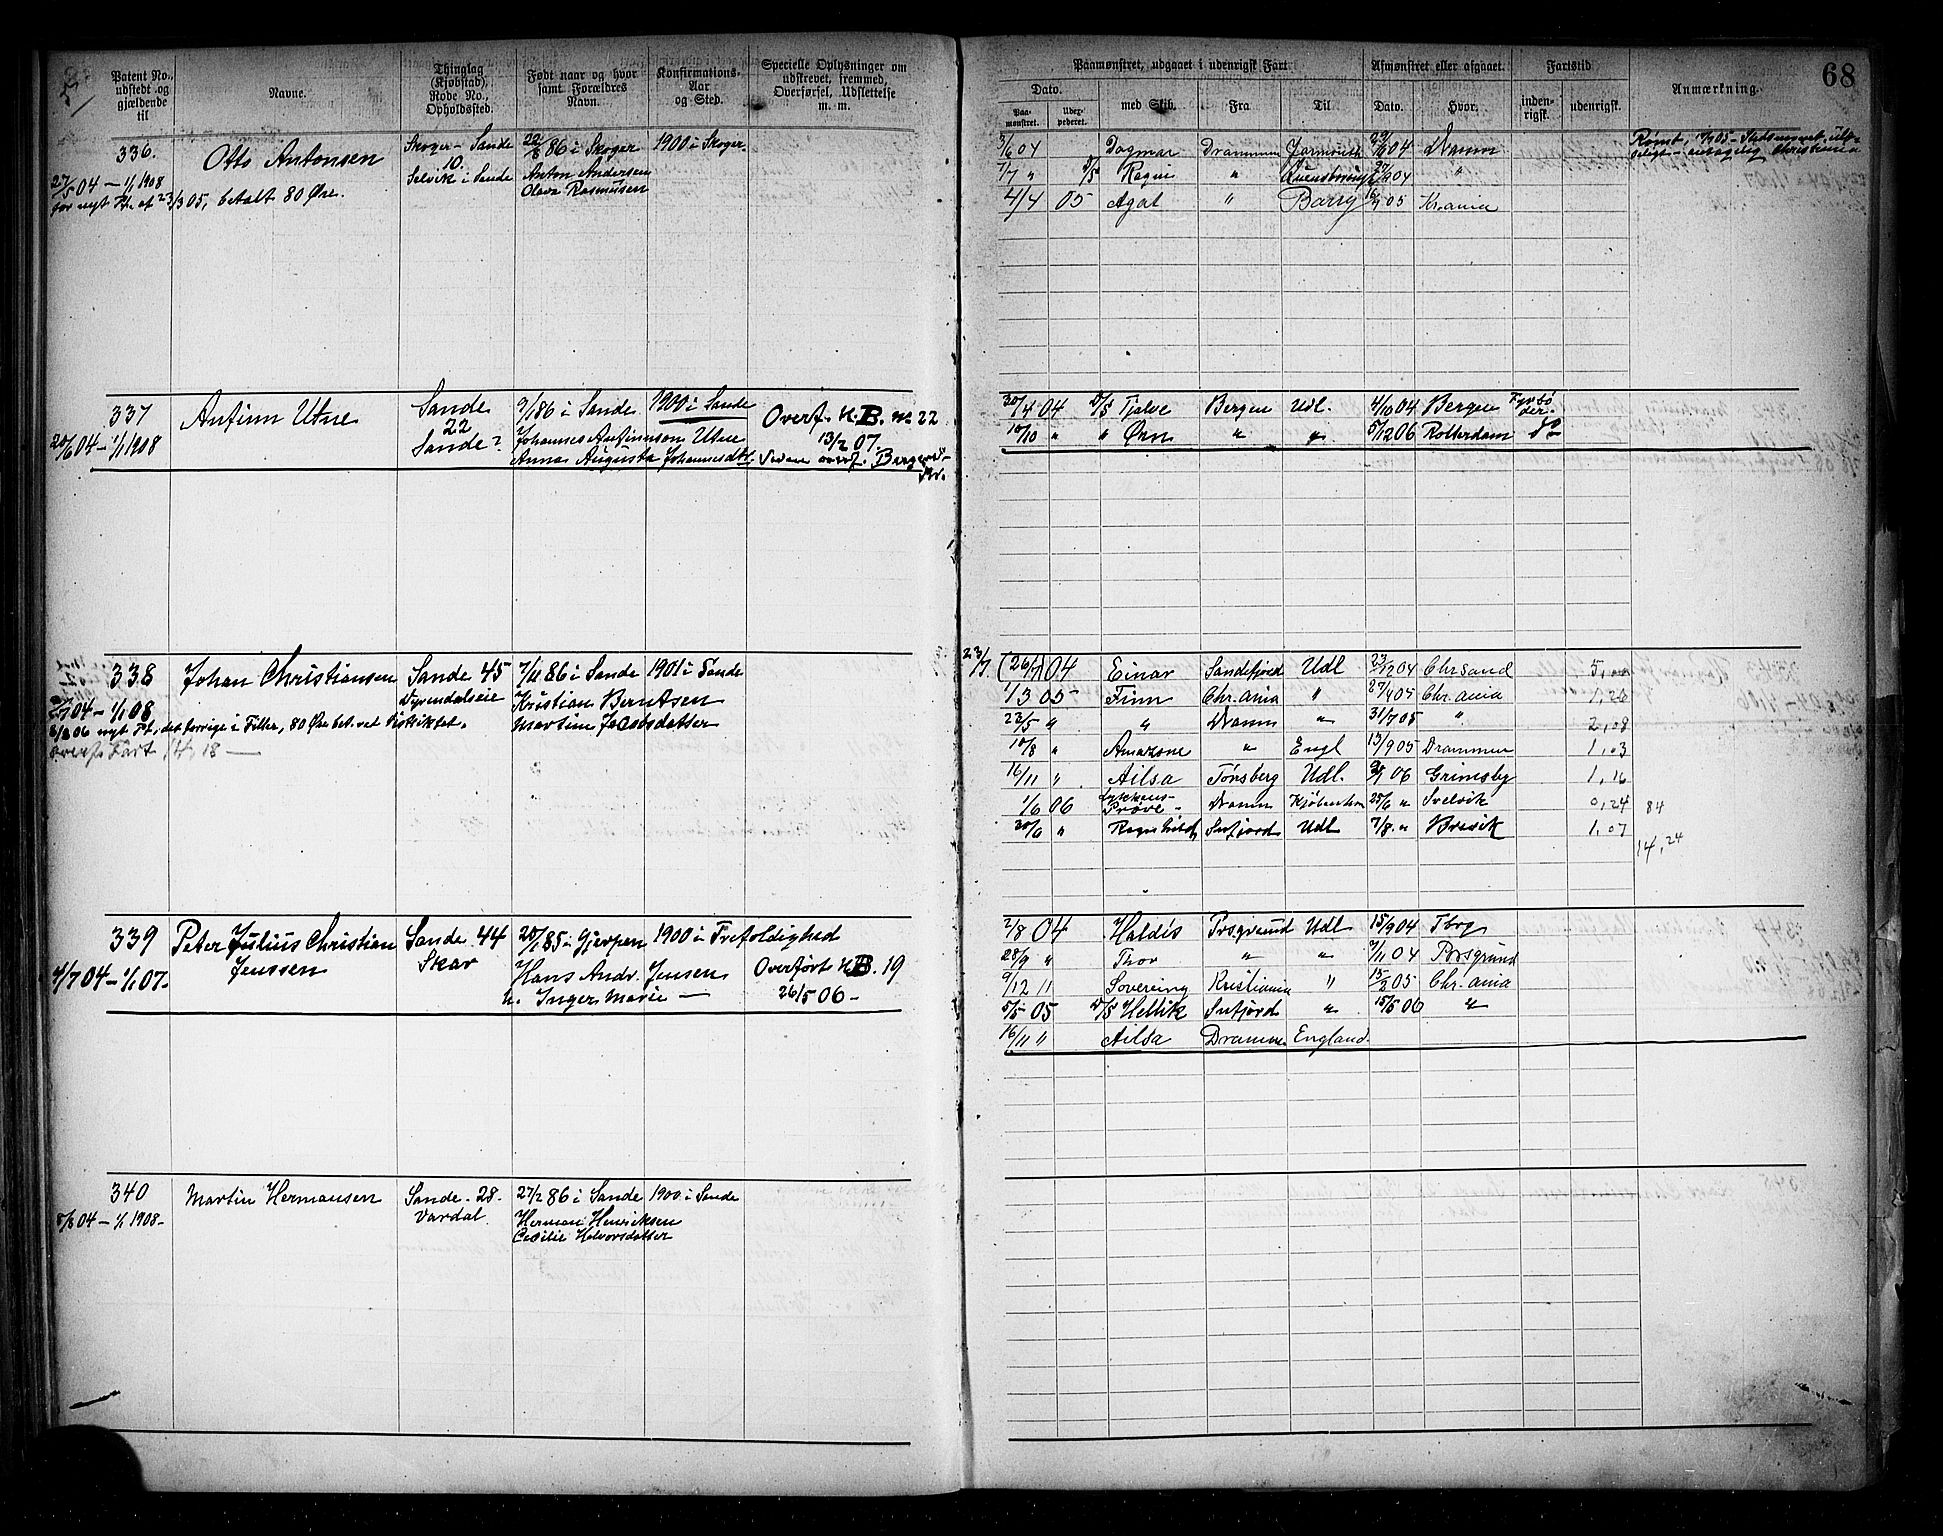 68
Patent No., udstedt og gjældende til
Navne.
Thinglag (Kjøbstad), Rode No., Opholdssted.
Født naar og hvor samt Forældres Navn.
Konfirmations- Aar og Step.
Specielle Oplysninger om udstrevet, fremmed, Overførsel, Udslettelse m. m.
Paamønstret, udgaaet i udenrigsk Fart.
Afmønstret eller afgaaet.
Fartstid
Anmærkning.
Dato.
Paa- mønstret.
Udex- pederet.
med Skib.
Fra
Til
Dato.
Hvor.
inden- rigsk.
udenrigsk.
336.
Otto Antonsen
Skoger - Sande
10.
Selvik i Sande
22/8 86 i Skoger
Anton Andersen
Olava Rasmussen
1900 i Skoger
27/5 04 - 1/1 1908
for nyt Pt. af 23/3 05, betalt 80 Øre.
3/6 04 Dagmar Drammen 04 Dramm
7/7 " D/S Ragni " 04 "
4/4 05 Agat " Barry 05 Kr.ania
337
Anfinn Utne
Sande
22
Sande?
9/1 86 i Sande
1900 i Sande
Johannes Anfinnson Utne
Annas Augusta Johannesdtr.
Overf. H.B. No 22
13/2 07.
20/6 04 - 1/1 1908
30/4 04 D/S Tjalve Bergen Udl. 4/10 04 Bergen Fyrbø der.
10/10 " " Ørn " " 5/12 06 Rotterdam Do
338
Johan Christiansen
Sande 45
Dyrendalseie
7/11 86 i Sande
Kristian Berntsen
Martine Jacobsdatter
1901 i Sande
04 - 1/1 08
06 nyt Pt, det forrige i Filler, 80 Øre bet. ved Distriktet.
overf. Fart 14, 18 —
23/7 (26/7) 04 Einar Sandefjord Udl 23/12 04 Chr.sand 5,00
1/3 05 Finn Chr.ania " 27/4 05 Chr.ania 1,26
23/5 " " Dramm " 31/7 05 " 2,08
10/8 " Amazone " Engl 13/9 05 Drammen 1,03
16/11 " Ailsa Tønsberg Udl. 06 Grimsby 1,16
1/6 06 Lykkens- Prøve - Dramm Kjøbenhvn 25/6 " Svelvik 0,24 84
30/6 " Ragnhild Snfjord Udl 7/8 " Brevik 1,07
14,24
339
Peter Julius Christian Jenssen
Sande 44
Skar
20/1 85 i Gjerpen
Hans Andr. Jensen
h. Inger Marie —
1900 i Trefoldighed
Overført H.B. 19
26/5 06 -
4/7 04 - 1/1 07.
2/8 04 Haldis Prsgrund Udl 15/9 04 Tbrg
28/9 " Thor " " 7/11 04 Porsgrund
9/12 11 Sovereing Kristiania " 15/2 05 Chr.ania
5/5 05 D/S Hellik Snfjord " 15/5 06 "
16/11 " Ailsa Dramme England.
340
Martin Hermansen
Sande - 28.
Vardal
27/2 86 i Sande
Herman Henriksen
Cecilie Halvorsdatter
1900 i Sande
5/8 04 - 1/1 1908 -